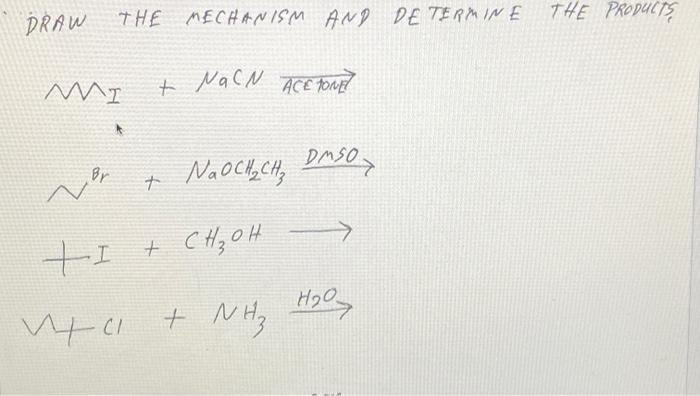 DRAW THE MECHANISM AND DETERMINE THE PRODUCTS
I + NaCN ACETONE
Br + NaOCH₂CH₃ DMSO
I + CH₃OH
Cl + NH₃ H₂O